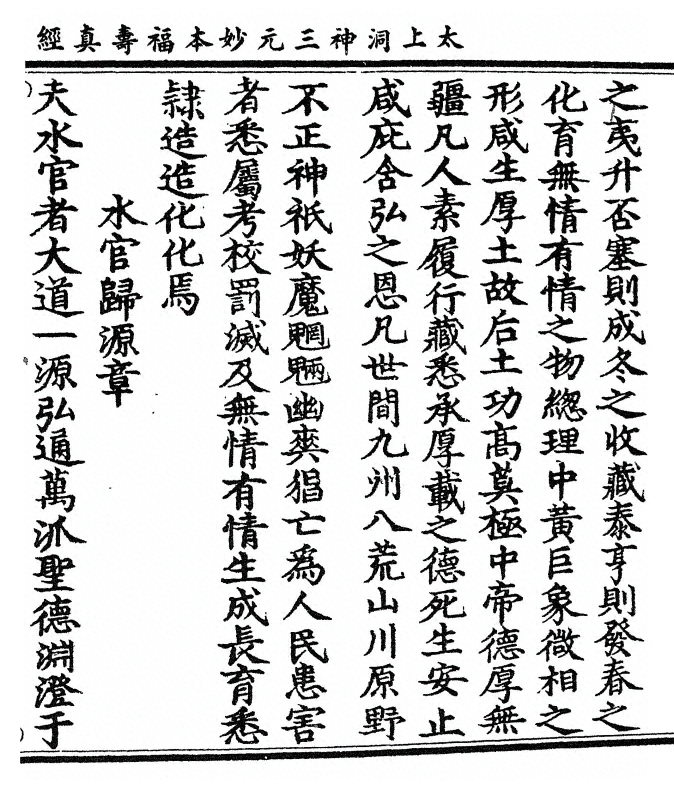 太上洞神三元妙本福壽真經
之夷升否塞則成冬之收藏泰亨則發春之
化育無情有情之物緫理中黃巨象微相之
形咸生厚土故后土功高莫極中帝德厚無
疆凡人素履行藏悉承厚載之德死生安止
咸庇含弘之恩凡世間九州八荒山川原野
不正神祇妖魔魍魎幽爽猖亡爲人民患害
者悉屬考校罰滅及無情有情生成長育悉
隸造造化化焉
水官歸源章
夫水官者大道一源弘通萬派聖德淵澄于